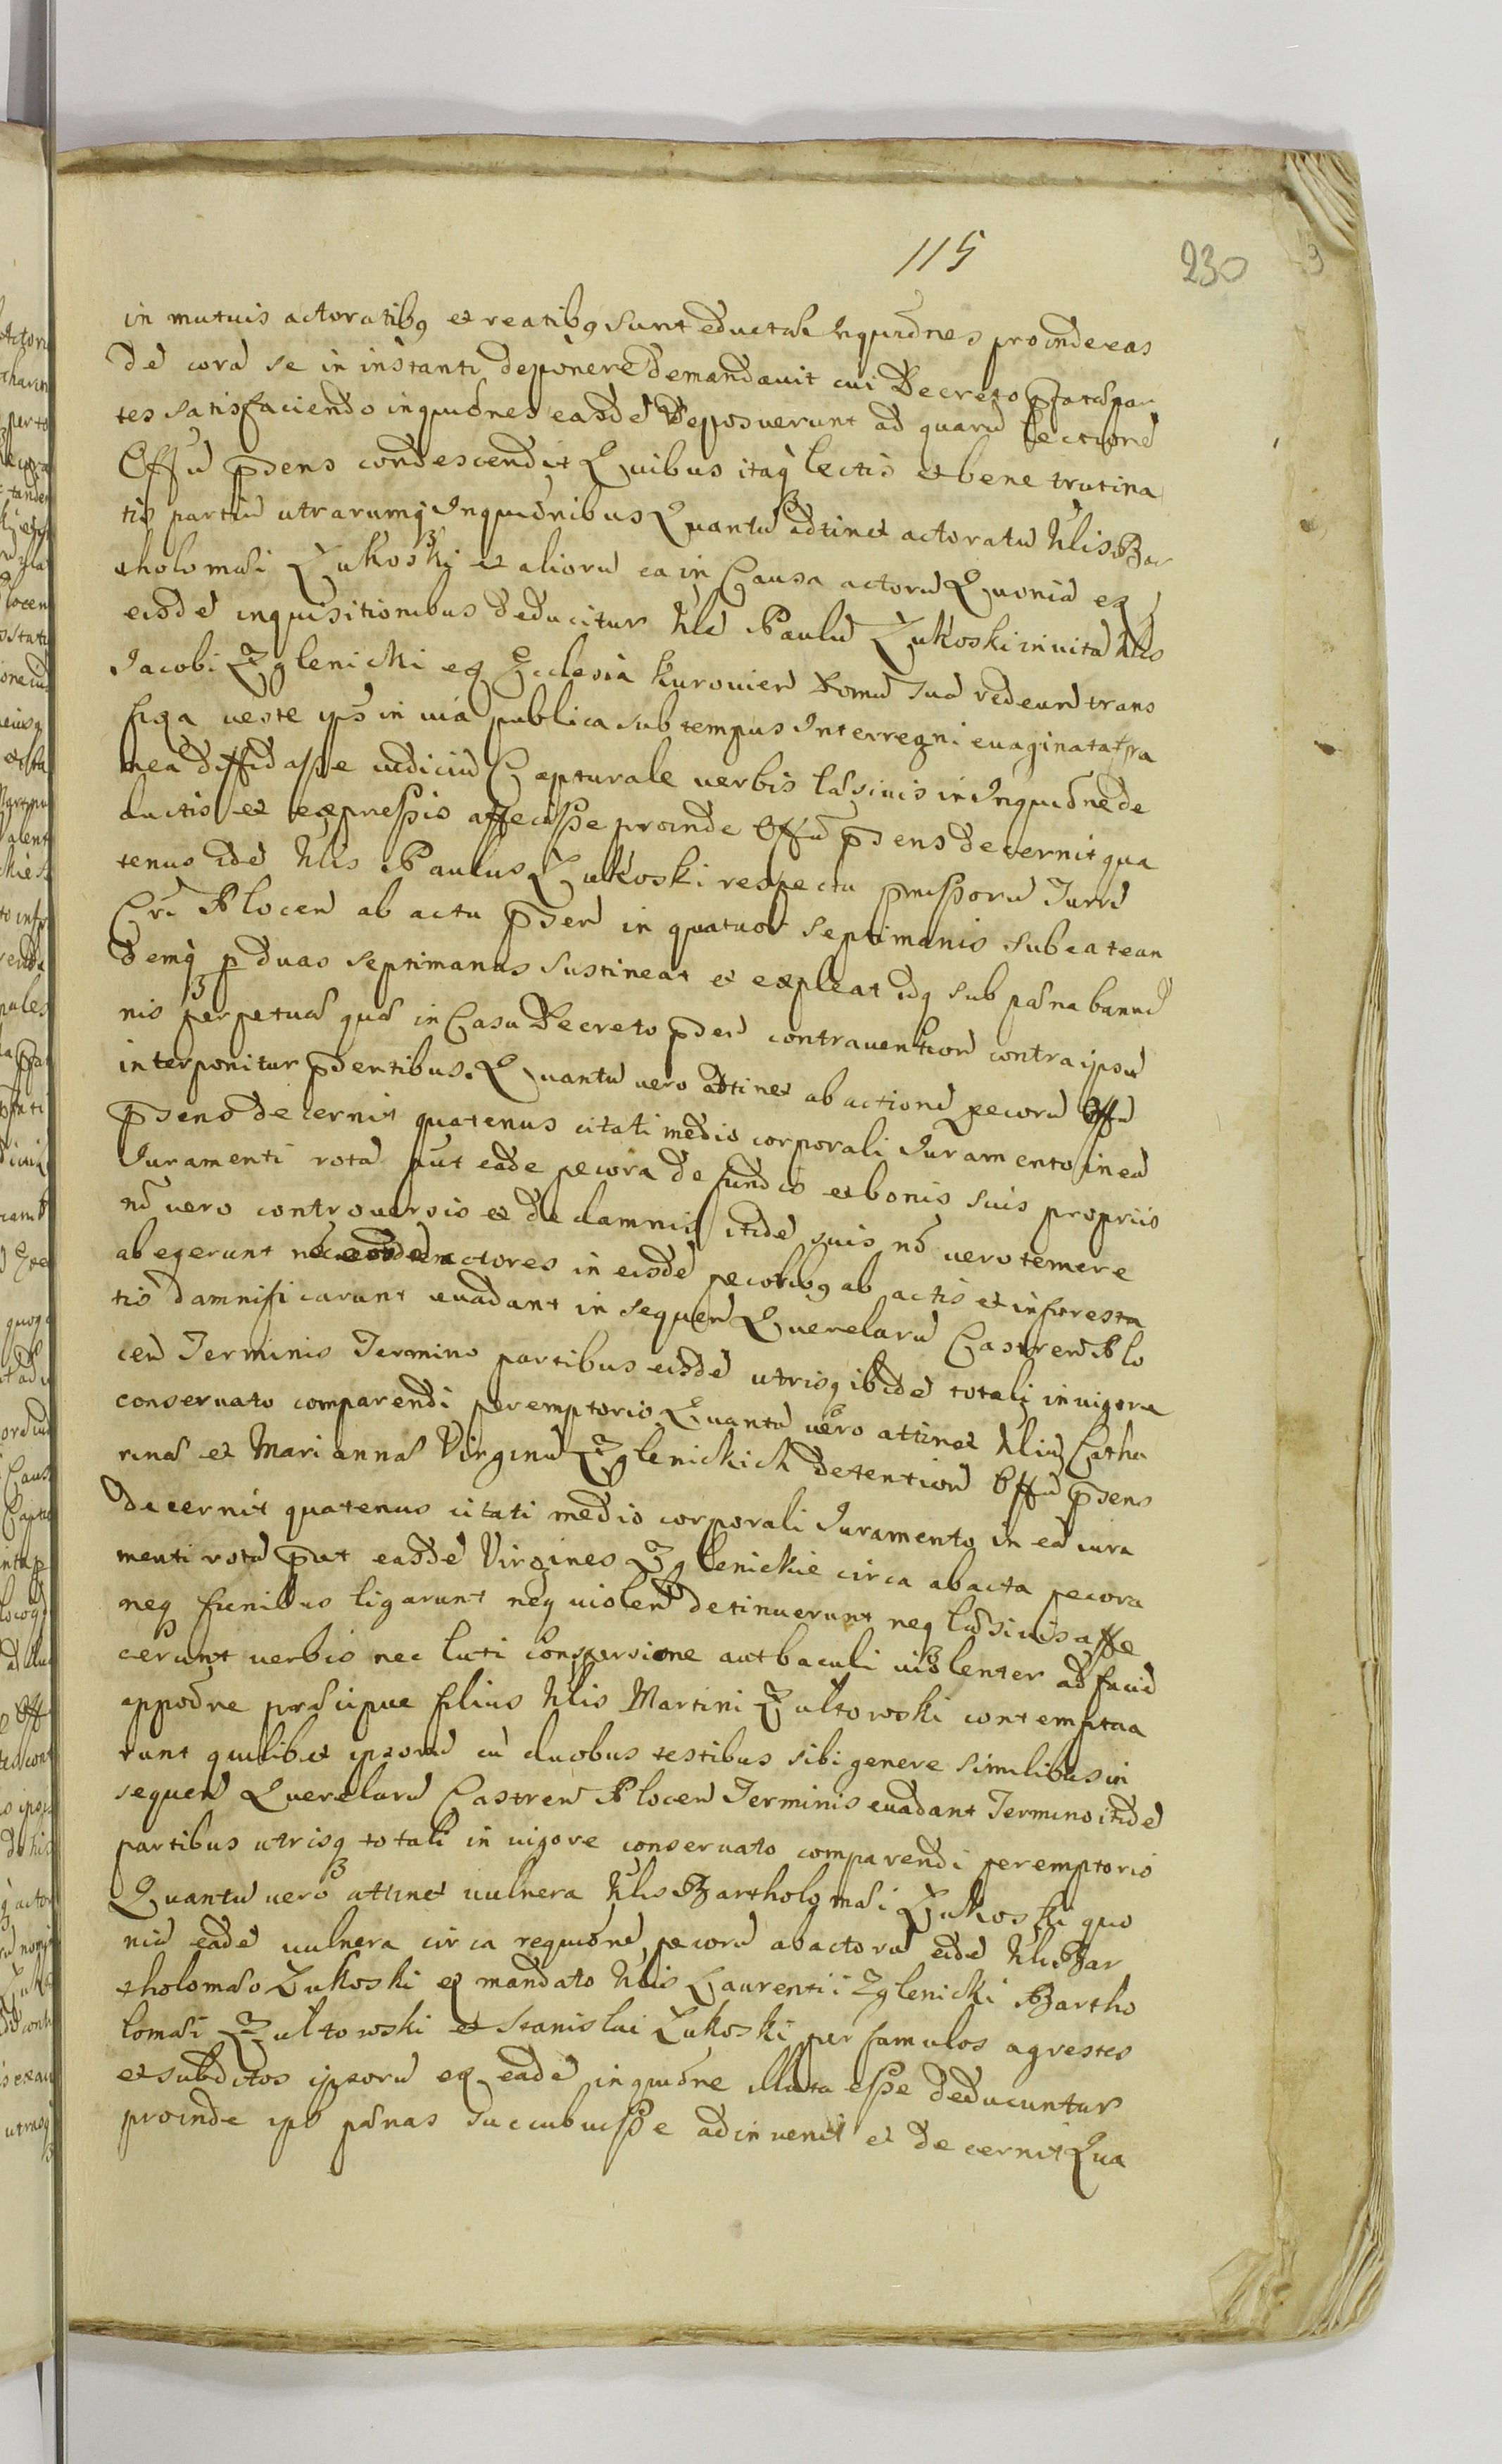 115
230
in mutuis actoratibq et reatibq sunt eductae Inquiōnes proinde eas
dē corā se in instanti deponere demandavit cui Decreto pfatae par
tes satisfaciendo inquiōnes easdē deposuerunt ad quarū lectionē
Offū pdens condescendit Quibus itaq lectis et bene trutina
tis partiū utrarumq Inquiōnibus Quantū attinet actoratū Nlis Bar
tholomaei Zukoski et aliorū ea in Causa actorū Quoniā ex
eisdē inquisitionibus deducitur Nlē Paulū Zukoski invitā Nlis
Jacobi Zglenicki ex Ecclesia Kurovień domū suā redeun trans
fixa veste ips in via publica sub tempus Interregni evaginata fra
mea diffidasse iudiciū Capturale verbis lascivis in Inquiōne de
ductis et expressis affecisse proinde Offū pdens decernit qua
tenus idē Nlis Paulus Zukoski respectu pmissorū Turrē
Cri Plocen ab actu pden in quatuor septimanis subeat ean
demq p duas septimanas sustineat et expleat idq sub paena banni
nis perpetuae quae in Casu Decreto pden contravention contra ipsū
interponitur pdentibus. Quantū vero attinet abactionē pecorū Offū
pdens decernit quatenus citati medio corporali Juramento in eā
Juramenti rotā put eade pecora de fundis et bonis suis propriis
nō vero controversis et de damnis itidē suis nō vero temere
abegerunt nec eosdem actores in eisdē pecoribq ab actis et infrresta
tis damnificarunt evadant in sequen Querelarū Castren Plo
cen Terminis Termino partibus eisdē utrisq ibidē totali in vigore
conservato comparendi peremptorio Quantū vero attinet Nliū Catha
rinae et Mariannae Virginū Zglenickich detention Offū pdens
decernit quatenus citati medio corporali Juramento in eā iura
menti rotā put easdē Virgines Zglenickie circa abacta pecora
neq funibus ligarunt neq violen detinuerunt neq lascivis affe
cerunt verbis nec luti conspersione aut baculi violenter ad faciē
appoōne praecipue filius Nlis Martini Zultowski contempta
runt quilibet ipsorū cū duobus testibus sibi genere similibus in
sequen Querelarū Castren Plocen Terminis evadant Termino itidē
partibus utrisq totali in vigore conservato comparendi peremptorio
Quantū vero attinet vulnera Nlis Bartholomaei Zukoski quo
niā eadē vulnera circa requiōnē pecorū abactorū eidē Nli Bar
tholomaeo Zukoski ex mandato Nlis Laurentii Zglenicki Bartho
lomaei Zultowski et Stanislai Zukoski per famulos agrestes
et subditos ipsorū ex eadē inquiōne illata esse deducuntur
proinde ips paenas succubuisse adinvenit et decernit Qua